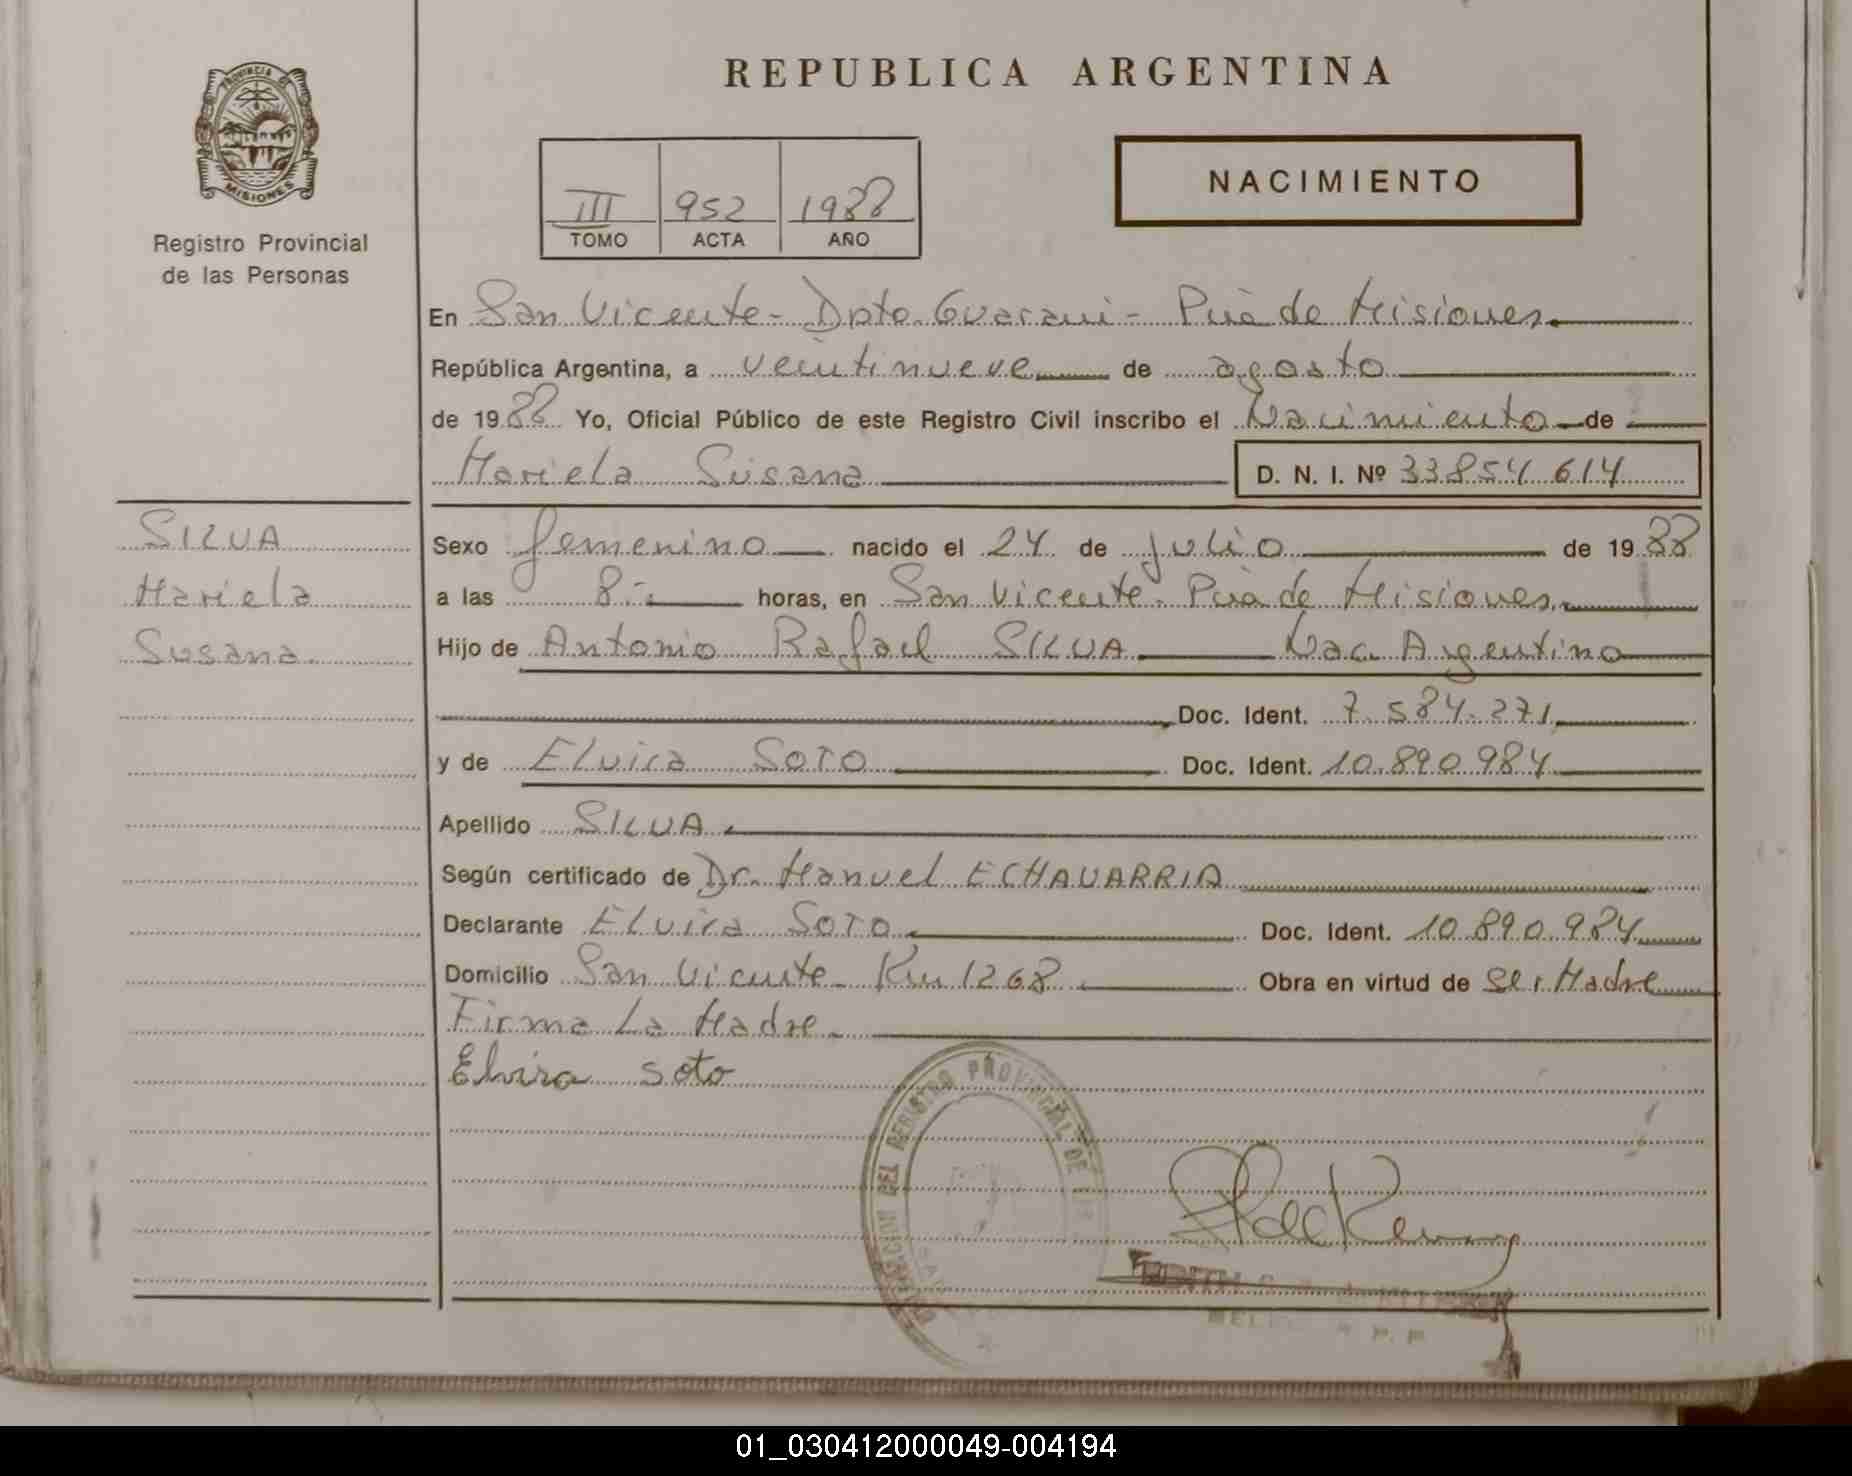 REPUBLICA ARGENTINA
PROVINCIA DE
MISIONES
Registro Provincial
de las Personas
III 952 1988
TOMO ACTA AÑO
NACIMIENTO
En San Vicente - Dpto. Guarani - Pcia de Misiones.
República Argentina, a veintinueve de agosto
de 1988 Yo, Oficial Público de este Registro Civil inscribo el Nacimiento de
Mariela Susana D. N. I. Nº 33854614
SILVA
Mariela
Susana.
Sexo femenino nacido el 24 de julio de 1988
a las 8.- horas, en San Vicente - Pcia de Misiones.
Hijo de Antonio Rafael SILVA Nac. Argentino
Doc. Ident. 7.584.271,
y de Elvira SOTO Doc. Ident. 10.890.984
Apellido SILVA
Según certificado de Dr. Manuel ECHAVARRIA
Declarante Elvira SOTO Doc. Ident. 10.890.984
Domicilio San Vicente - Km 1268 Obra en virtud de Ser Madre
Firma La Madre.
Elvira Soto
DEL REGISTRO PROVINCIAL DE
01_030412000049-004194